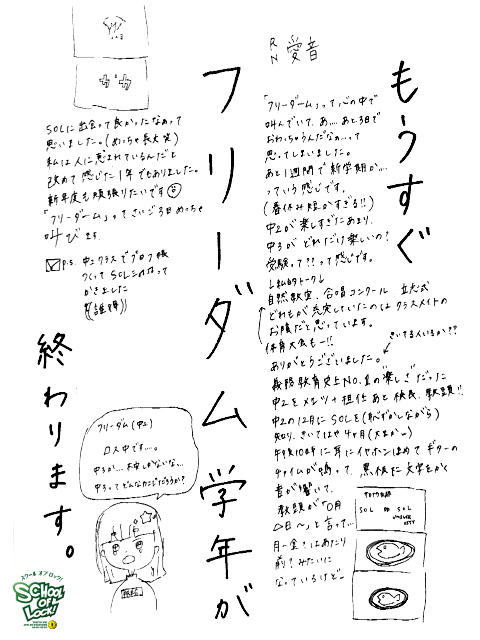 もうすぐ
フリーダム学年が
終わります。
RN 愛音
「フリーダーム」って心の中で
叫んでいて、あ…あと3日で
おわっちゃうんだなぁ…って
思ってしまいました。
あと1週間で新学期が…
っていう感じです。
(春休み短かすぎる!!)
中2が楽しすぎたあまり、
中3がどれだけ楽しいの?
受験って??って感じです。
自然教室、合唱コンクール 立志式
どれもが充実していたのはクラスメイトの
お陰だと思っています。
体育大会もー!!
ありがとうございました。
きいてる人いるか??
義務教育史上NO.1の"楽しさ"だった
中2をメンツ+担任 あと校長、教頭!!
中2の12月にSOLを(恥ずかしながら)
知り、きいてはや4ヶ月
午後10時に耳にイヤホンはめてギターの
チャイムが鳴って、黒板に文字をかく
音が響いて、
教頭が「〇月
△日〜」と言って…
月〜金はあたり
前?みたいに
なっているけど…
SOL SOL
SOLに出会って良かったなぁって
思いました。(めっちゃ長文笑)
私は人に恵まれているんだと
改めて感じた1年でもありました。
新年度も頑張りたいです
「フリーダーム」ってさいごの日めっちゃ
叫びます
P.S. 中2クラスでプロフ帳
つくってSOLニのなって
かきました
(誰得)
フリーダム(中2)
ロス中です…。
中3が…不安しかないな、、
中3ってどんなカンジだろうか?
スクール オブ ロック!
SCHOOL OF LOCK!